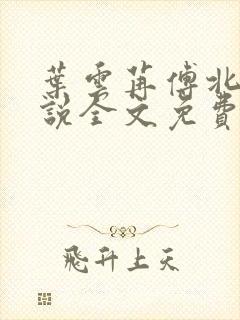 葉雲苒傅北
說全文免費
飛升上天